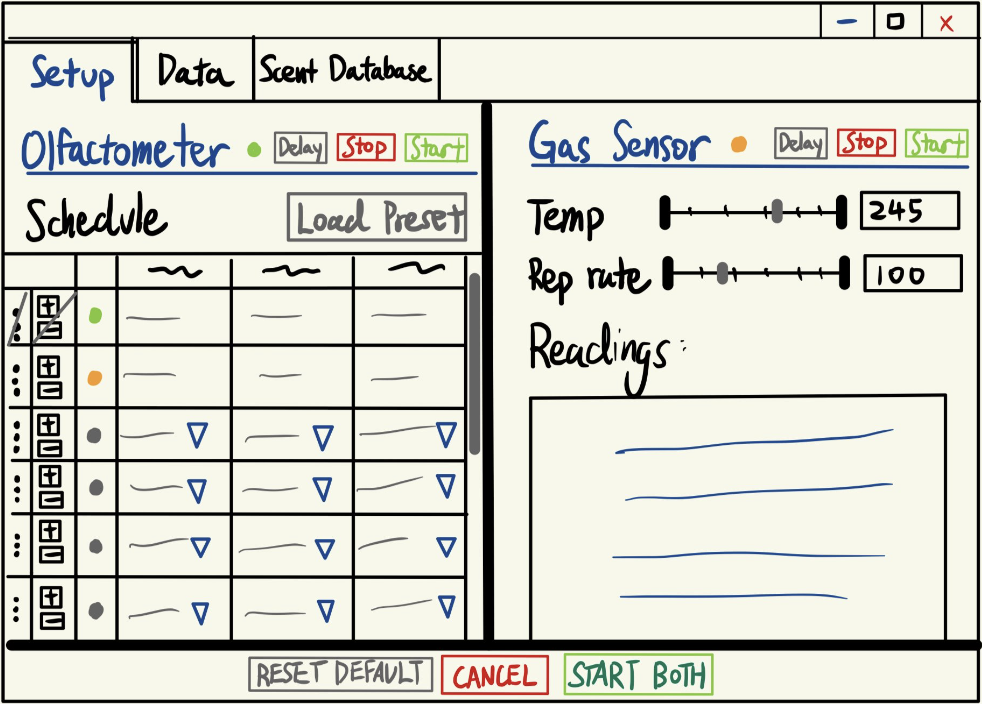 Setup Data Scent Database
Olfactometer Delay Stop Start
Schedule Load Preset
Gas Sensor Delay Stop Start
Temp 245
Rep rate 100
Readings:
RESET DEFAULT CANCEL START BOTH